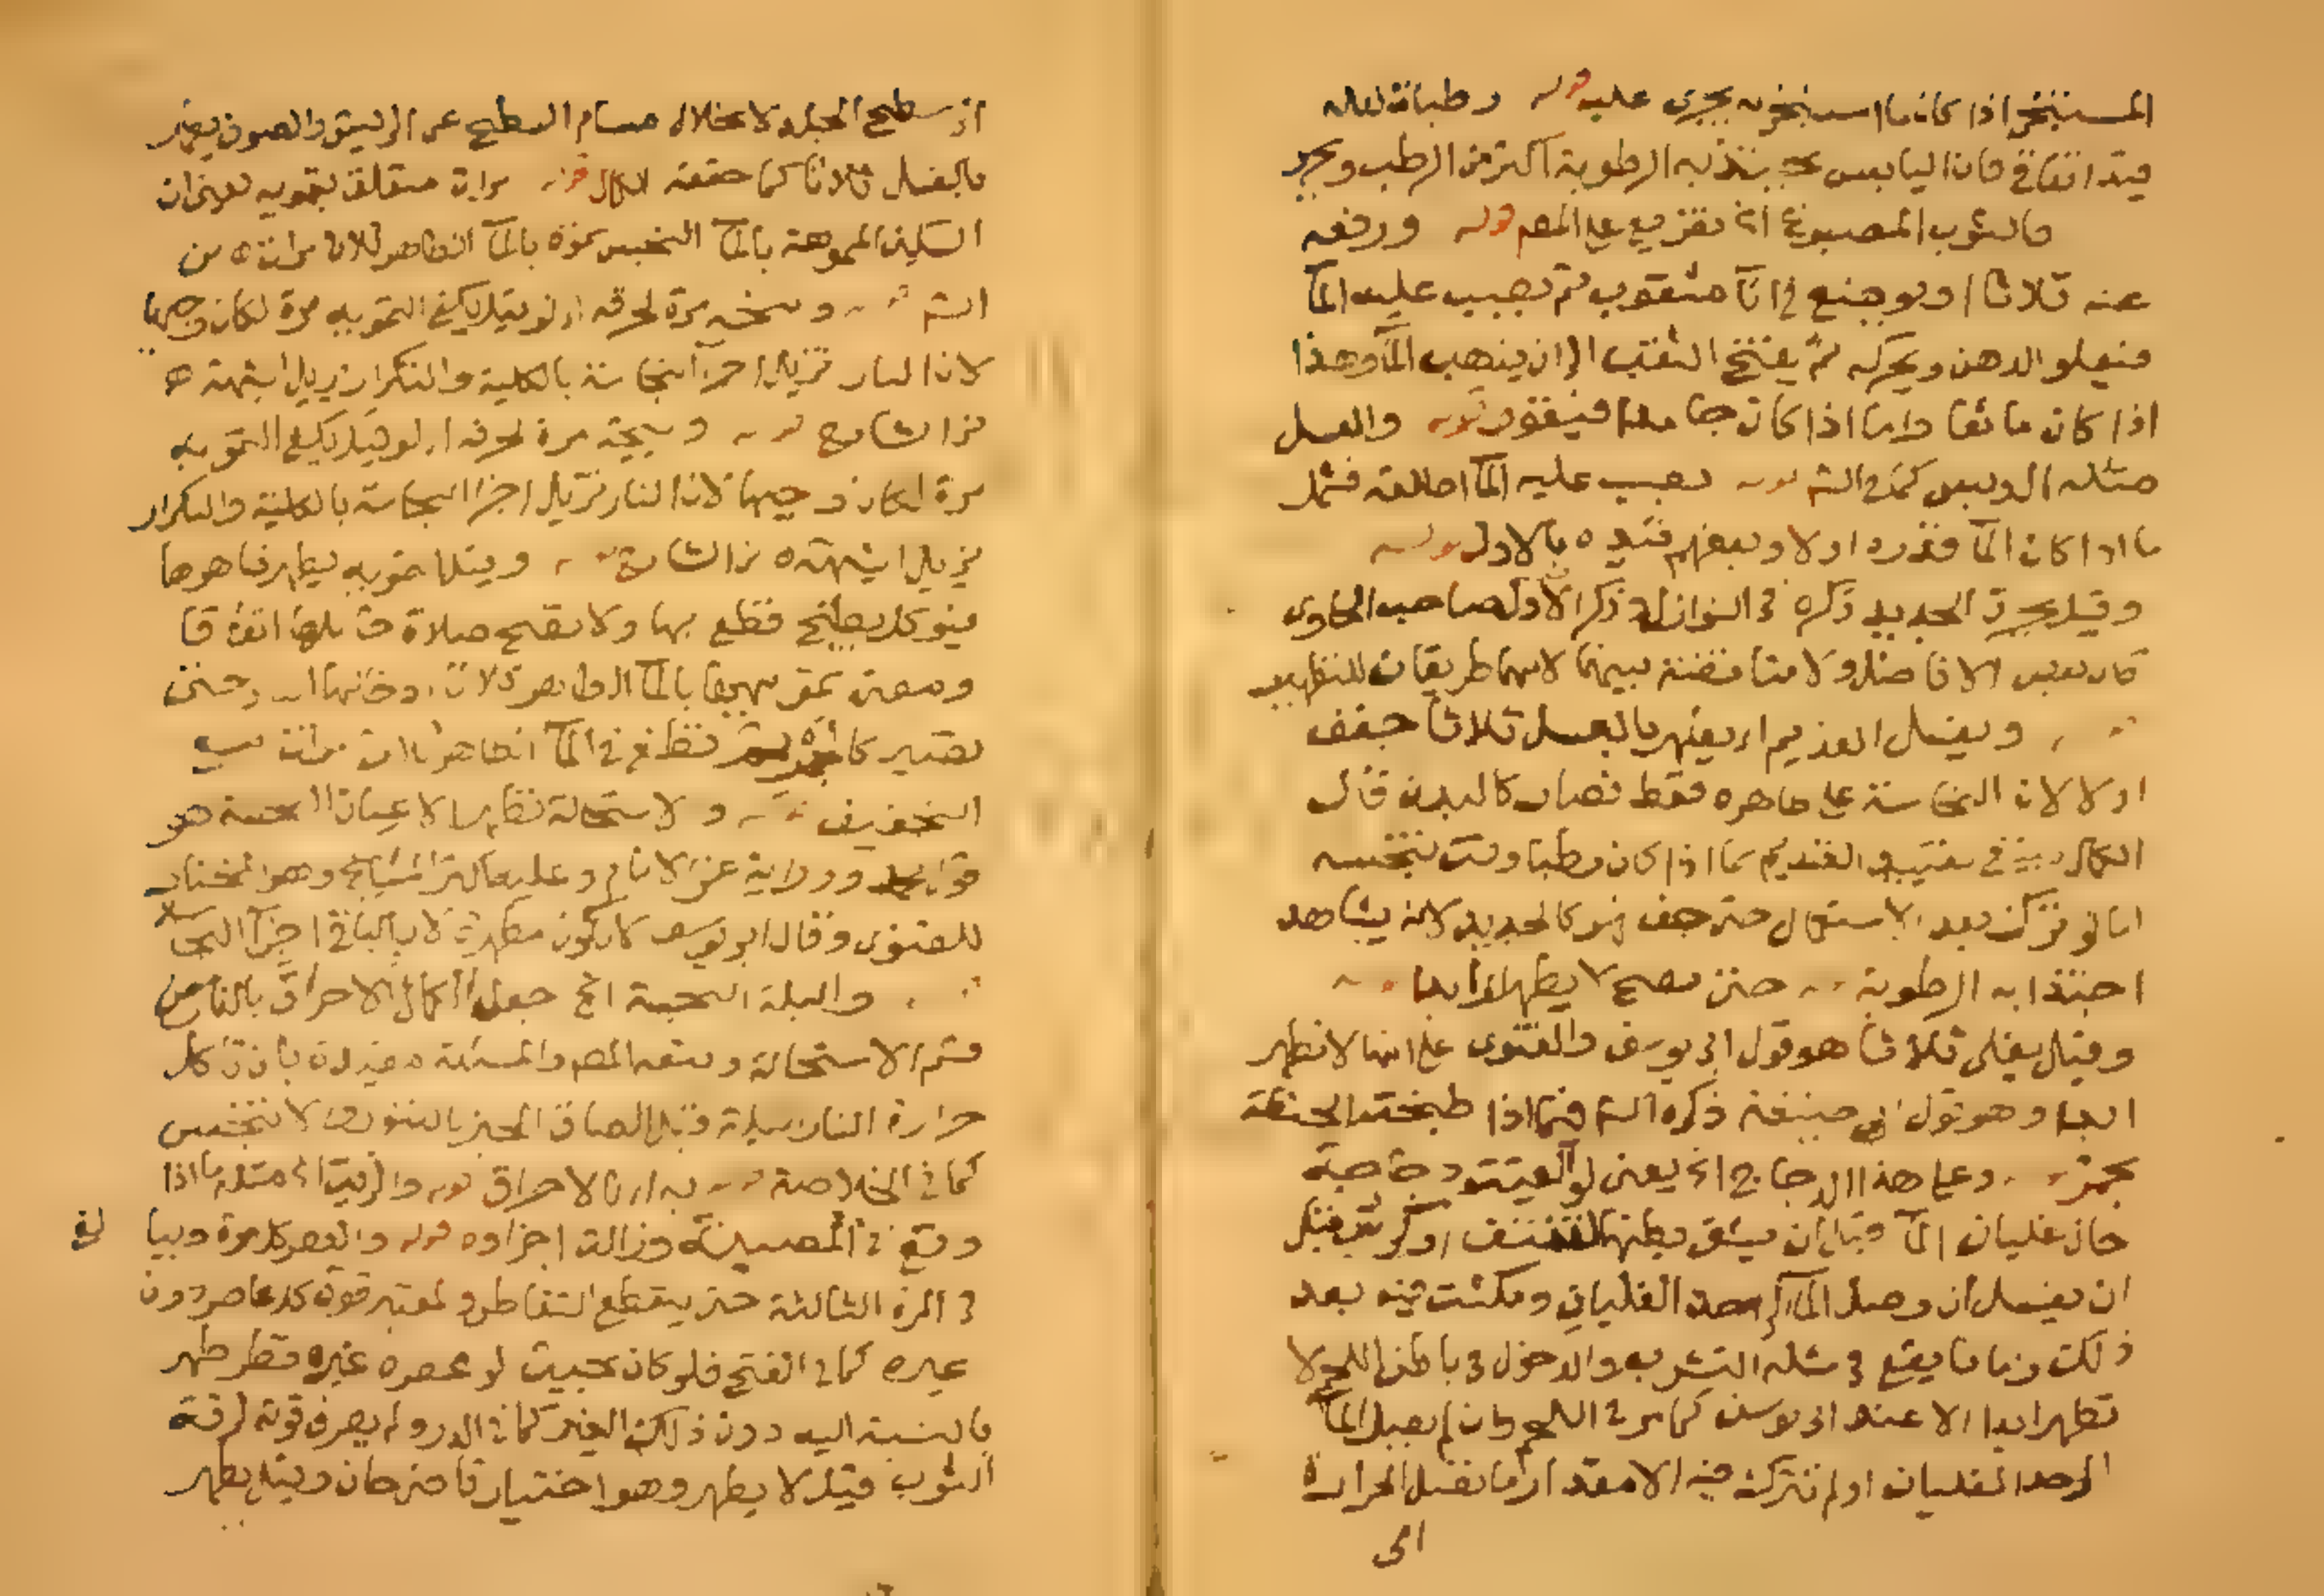 المستنخر اذا كان ما استنخر به يجرى عليه قوله رطبا
قيد اتفاقي فان اليابس يجتذب الرطوبة اكثر من الرطب
فالثوب المصبوغ الخ تفريع على المص قوله ورفعه
عنه ثلاثا او يوضع في انآ مثقوب ثم يصب عليه المآ
فيعلو الدهن ويحركه ثم يفتح الثقب الى ان يذهب المآ وهذا
اذا كان مائعا واما اذا كان جامدا فيقور قوله والعسل
مثله الدبس كما في الش قوله يصب عليه المآ اطلقه فشمل
ما اذا كان المآ قدره اولا وبعضهم قيده بالاول قوله
وقيل يجرى الجديد ذكره في النوازل وذكر الاول صاحب الحاوى
قال بعض الافاضل ولا مناقضة بينهما لانهما طريقان للتطهير
ويغسل القديم اى يطهر بالغسل ثلاثا جفف
اولا لان النجاسة على ظاهره فقط فصار كالبدن قال
الكمال ينبغي تقييد القديم بما اذا كان رطبا وقت تنجسه
اما لو ترك بعد الاستعمال حتى جف فهو كالجديد لانه يشاهد
اجتذابه الرطوبة حتى نضج لا يطهر ابدا
وقيل يغلى ثلاثا هو قول ابى يوسف والفتوى على انها لا تطهر
ابدا وهو قول ابى حنيفة ذكره الش فيما اذا طبخت الحنطة
بخمر وعلى هذا الدجاج الخ يعنى لو القيت دجاجة
حال غليان المآ قبل ان يشق بطنها لتنتف او كرش قبل
ان يغسل ان وصل المآ الى حد الغليان ومكثت فيه بعد
ذلك زمانا يقع في مثله التشرب والدخول في باطن اللحم لا
تطهر ابدا الا عند ابى يوسف كما مر في اللحم وان لم يصل المآ
الى حد الغليان او لم تترك فيه الا مقدار ما تصل الحرارة
الى
سطح الجلد لانحلال مسام السطح عن الريش والصوف يطهر
بالغسل ثلاثا كما حققه الكمال قوله مرات متعلق بتمويه يعنى ان
السكين المموهة بالمآ النجس تموه بالمآ الطاهر ثلاث مرات اه من
الش قوله ويجب مرة لحرقه اى لو قيل يكفى التمويه مرة لكان وجيها
لان النار تزيل اجزآ النجاسة بالكلية والتكرار يزيل شبهته اه
من الشارح قوله ويجب مرة لحرقه اى لو قيل يكفى التمويه
مرة لكان وجيها لان النار تزيل اجزا النجاسة بالكلية والتكرار
يزيل شبهته اه من الشارح قوله وقبل التمويه يطهر ظاهرها
فيؤكل بطيخ قطع بها ولا تصح صلاة حاملها اتفاقا
ومعنى تمويهها بالمآ الطاهر ثلاثا ادخالها النار حتى
تصير كالجمر ثم تطفى في المآ الطاهر ثلاث مرات مع
التجفيف قوله والاستحالة تطهر الاعيان النجسة هو
قول محمد ورواية عن الامام وعليه اكثر المشايخ وهو المختار
للفتوى وقال ابو يوسف لا يكون مطهرة لان الباقى اجزآ النجاسة
والبلة النجسة الخ جعل الكمال الاحراق بالنار من
قسم الاستحالة وتبعه المص والمسئلة مقيدة بان تاكل
حرارة النار البلة قبل الصاق الخبز بالتنور والا تنجس
كما في الخلاصة قوله به اى بالاحراق قوله والزيت الخ مثله ما اذا
وقع في المصبنة وزالت اجزاؤه قوله والعصر كل مرة ويبا
لغ
في المرة الثالثة حتى ينقطع التقاطر والمعتبر قوة كل عاصر دون
غيره كما في الفتح فلو كان بحيث لو عصره غيره قطر طهر
بالنسبة اليه دون ذلك الغير كما في الدر ولم يصرف قوته لرقة
الثوب قيل لا يطهر وهو اختيار قاضى خان وقيل يطهر